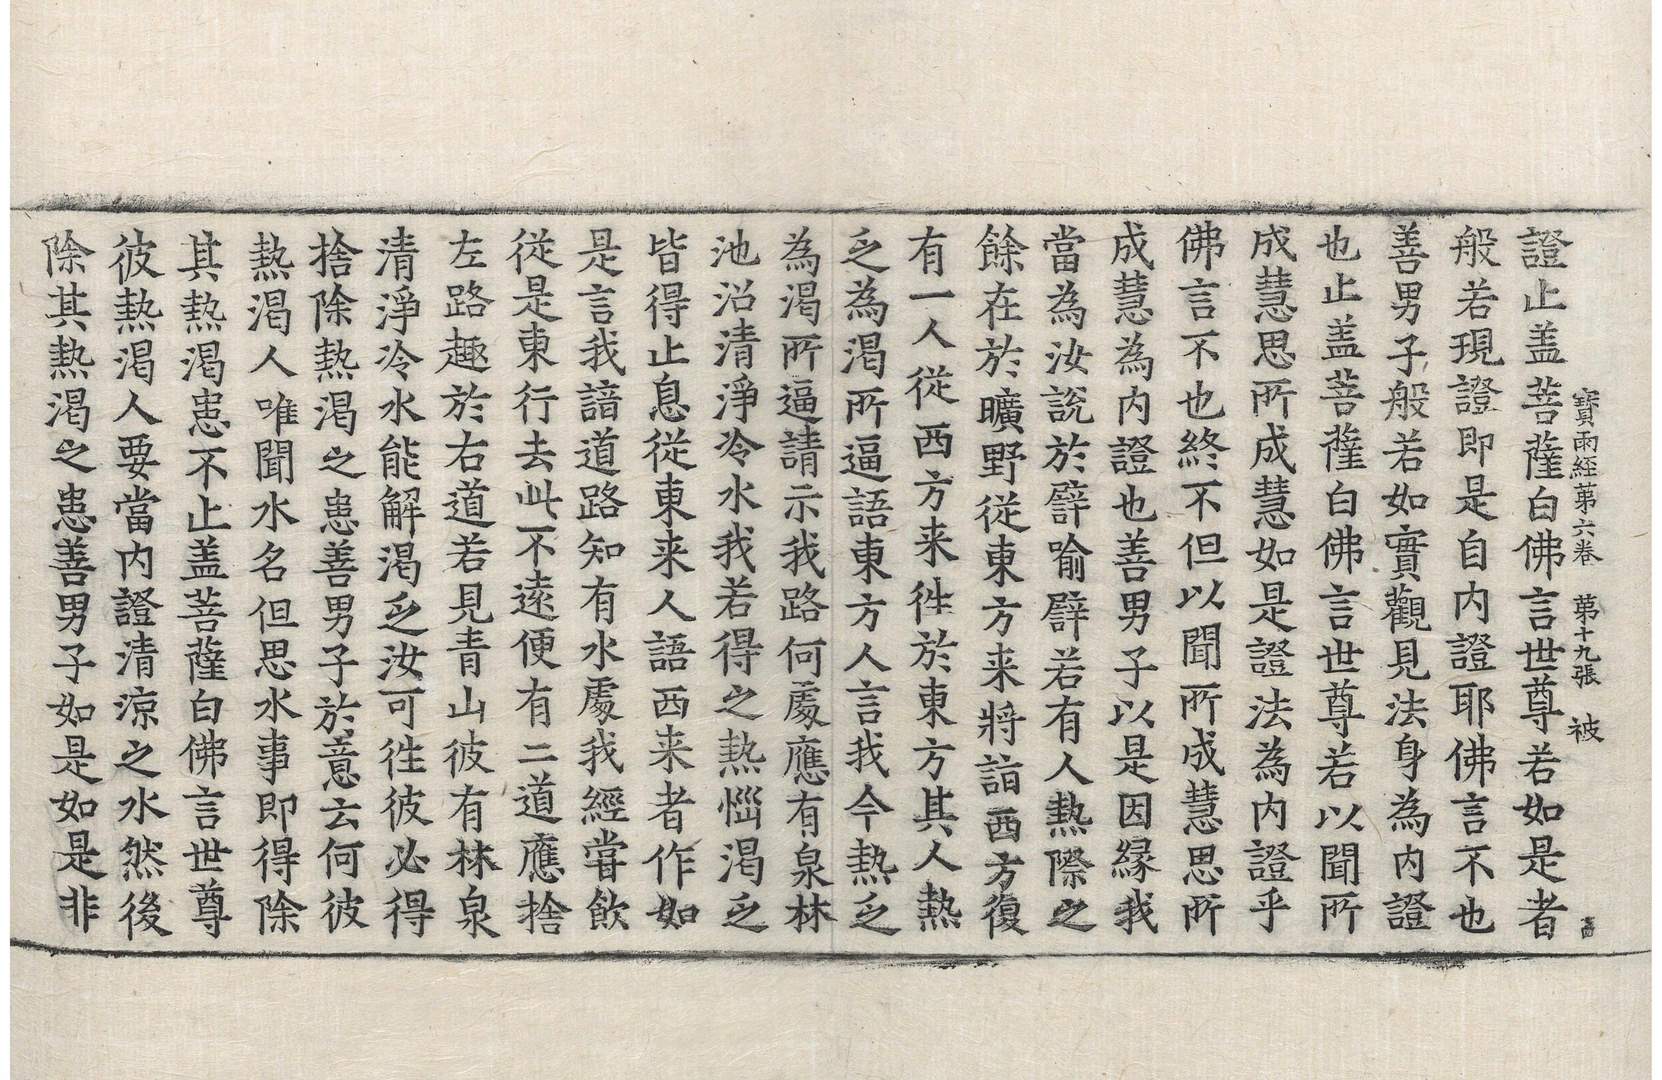 寶雨経苐六卷　苐十九張　被
證止盖菩薩白佛言世尊若如是者
般若現證即是自内證耶佛言不也
善男子般若如實觀見法身為内證
也止盖菩薩白佛言世尊若以聞所
成慧思所成慧如是證法為内證乎
佛言不也終不但以聞所成慧思所
成慧為内證也善男子以是因縁我
當為汝說於譬喻譬若有人熱際之
餘在於曠野從東方来將詣西方復
有一人從西方来徃於東方其人熱
乏為渴所逼語東方人言我今熱乏
為渴所逼請示我路何處應有泉林
池沼清淨冷水我若得之熱惱渴乏
皆得止息從東来人語西来者作如
是言我諳道路知有水處我經甞飲
從是東行去此不遠便有二道應捨
左路趣於右道若見青山彼有林泉
清淨冷水能解渴乏汝可徃彼必得
捨除熱渴之患善男子於意云何彼
熱渴人唯聞水名但思水事即得除
其熱渴患不止盖菩薩白佛言世尊
彼熱渴人要當内證清涼之水然後
除其熱渴之患善男子如是如是非